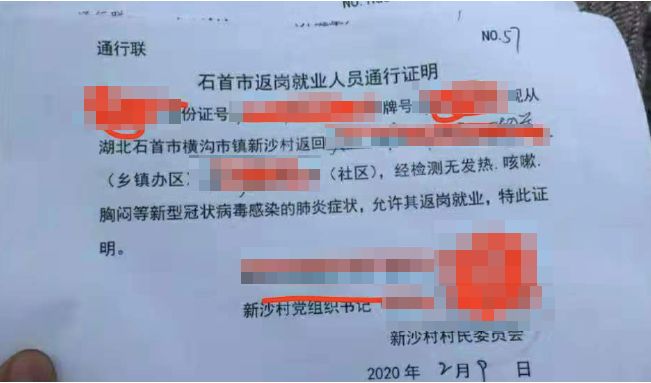 通行联
NO.57
石首市返岗就业人员通行证明
份证号 牌号 现从
湖北石首市横沟市镇新沙村返回
（乡镇办区） （社区），经检测无发热.咳嗽.
胸闷等新型冠状病毒感染的肺炎症状，允许其返岗就业，特此证
明。
新沙村党组织书记
新沙村村民委员会
2020 年 2月 9 日